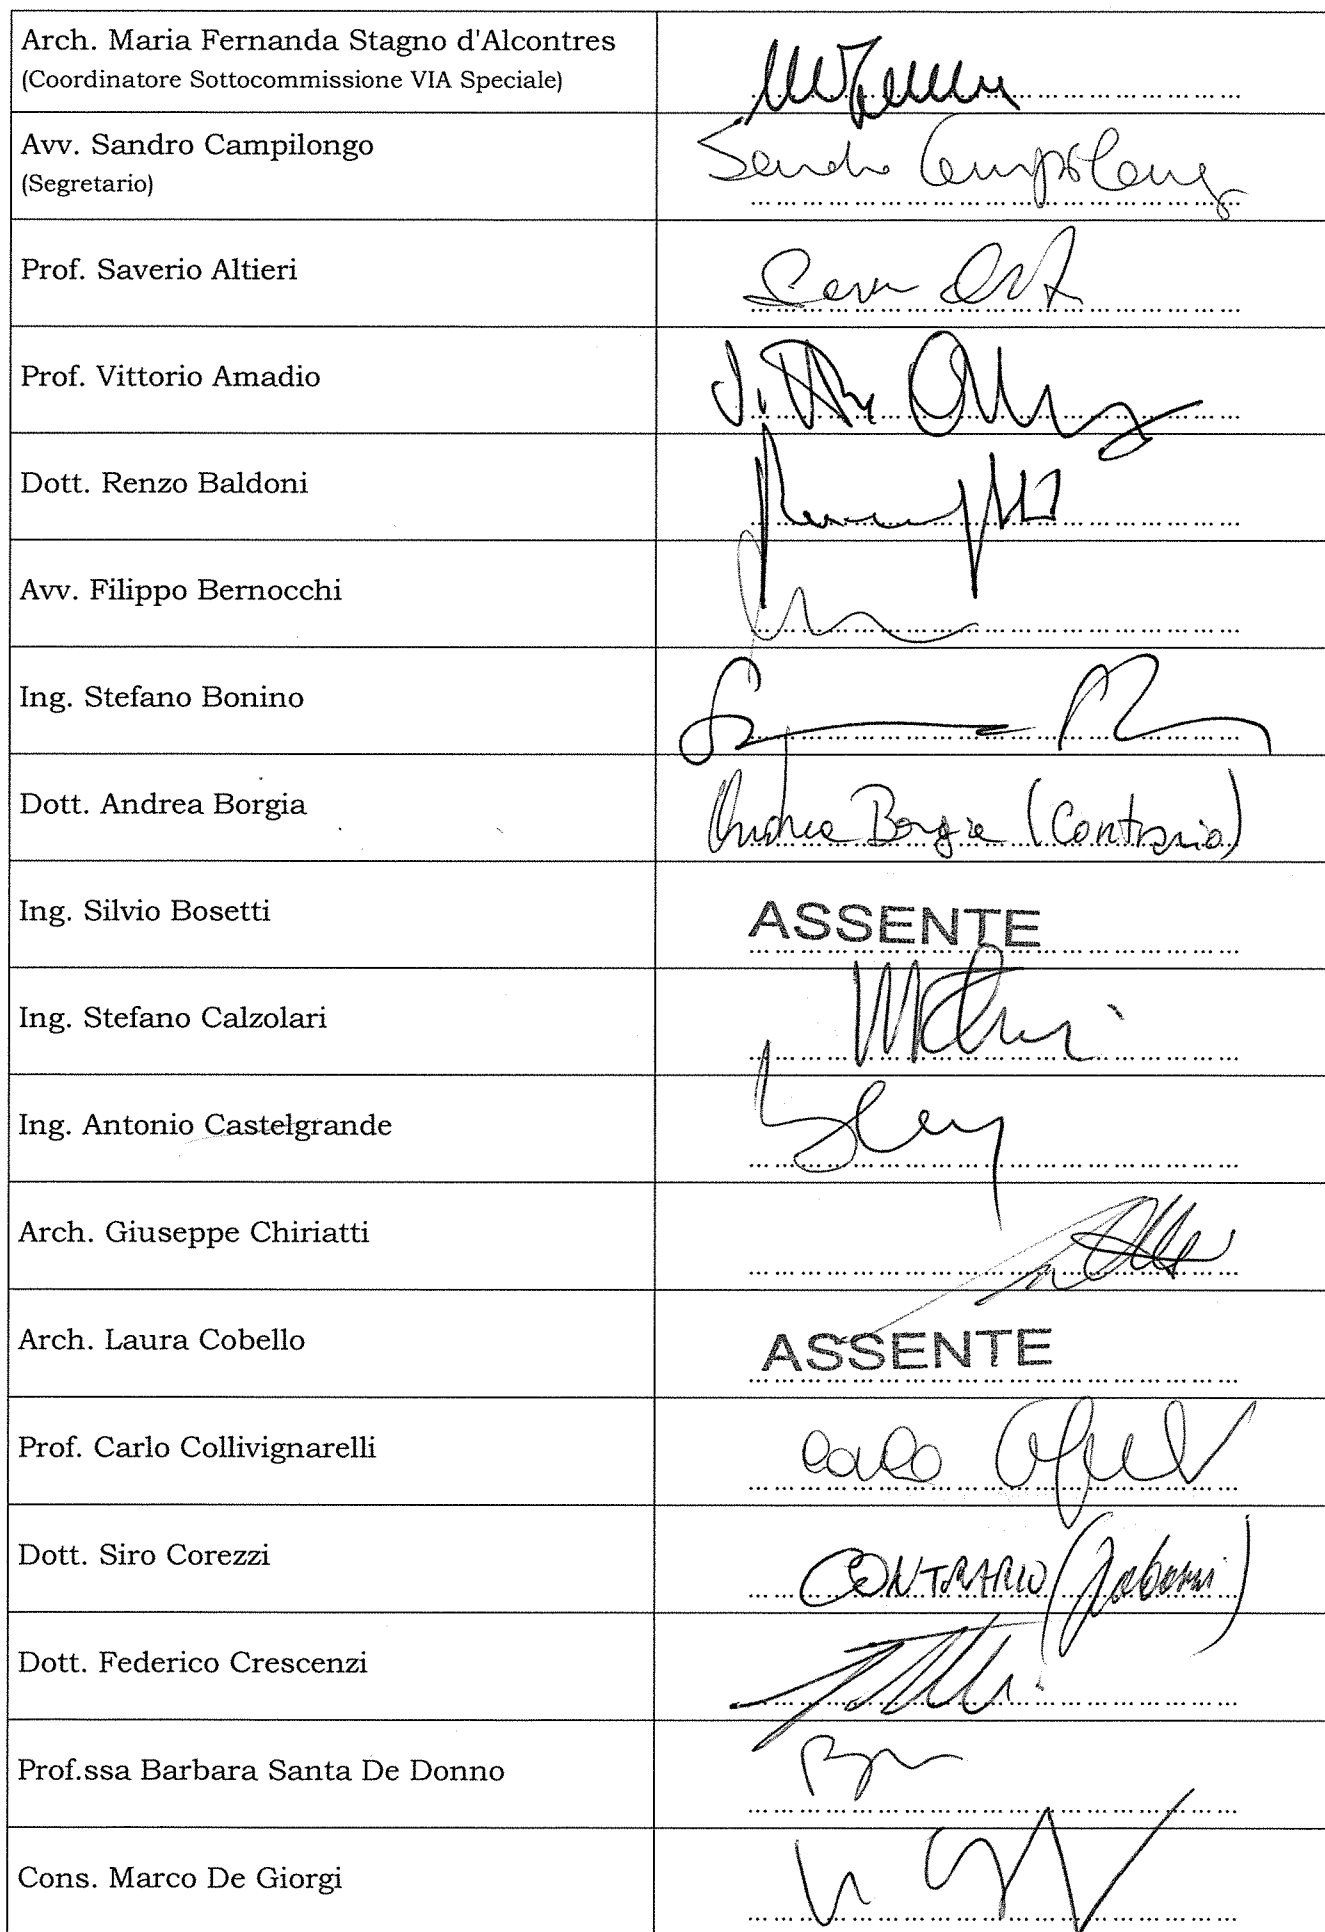 Arch. Maria Fernanda Stagno d'Alcontres
(Coordinatore Sottocommissione VIA Speciale)
Avv. Sandro Campilongo
(Segretario)
Sandro Campilongo
Prof. Saverio Altieri
Prof. Vittorio Amadio
Dott. Renzo Baldoni
Avv. Filippo Bernocchi
Ing. Stefano Bonino
Dott. Andrea Borgia
Andrea Borgia (Contrario)
Ing. Silvio Bosetti
ASSENTE
Ing. Stefano Calzolari
Ing. Antonio Castelgrande
Arch. Giuseppe Chiriatti
Arch. Laura Cobello
ASSENTE
Prof. Carlo Collivignarelli
Carlo
Dott. Siro Corezzi
CONTRARIO
Dott. Federico Crescenzi
Prof.ssa Barbara Santa De Donno
Cons. Marco De Giorgi